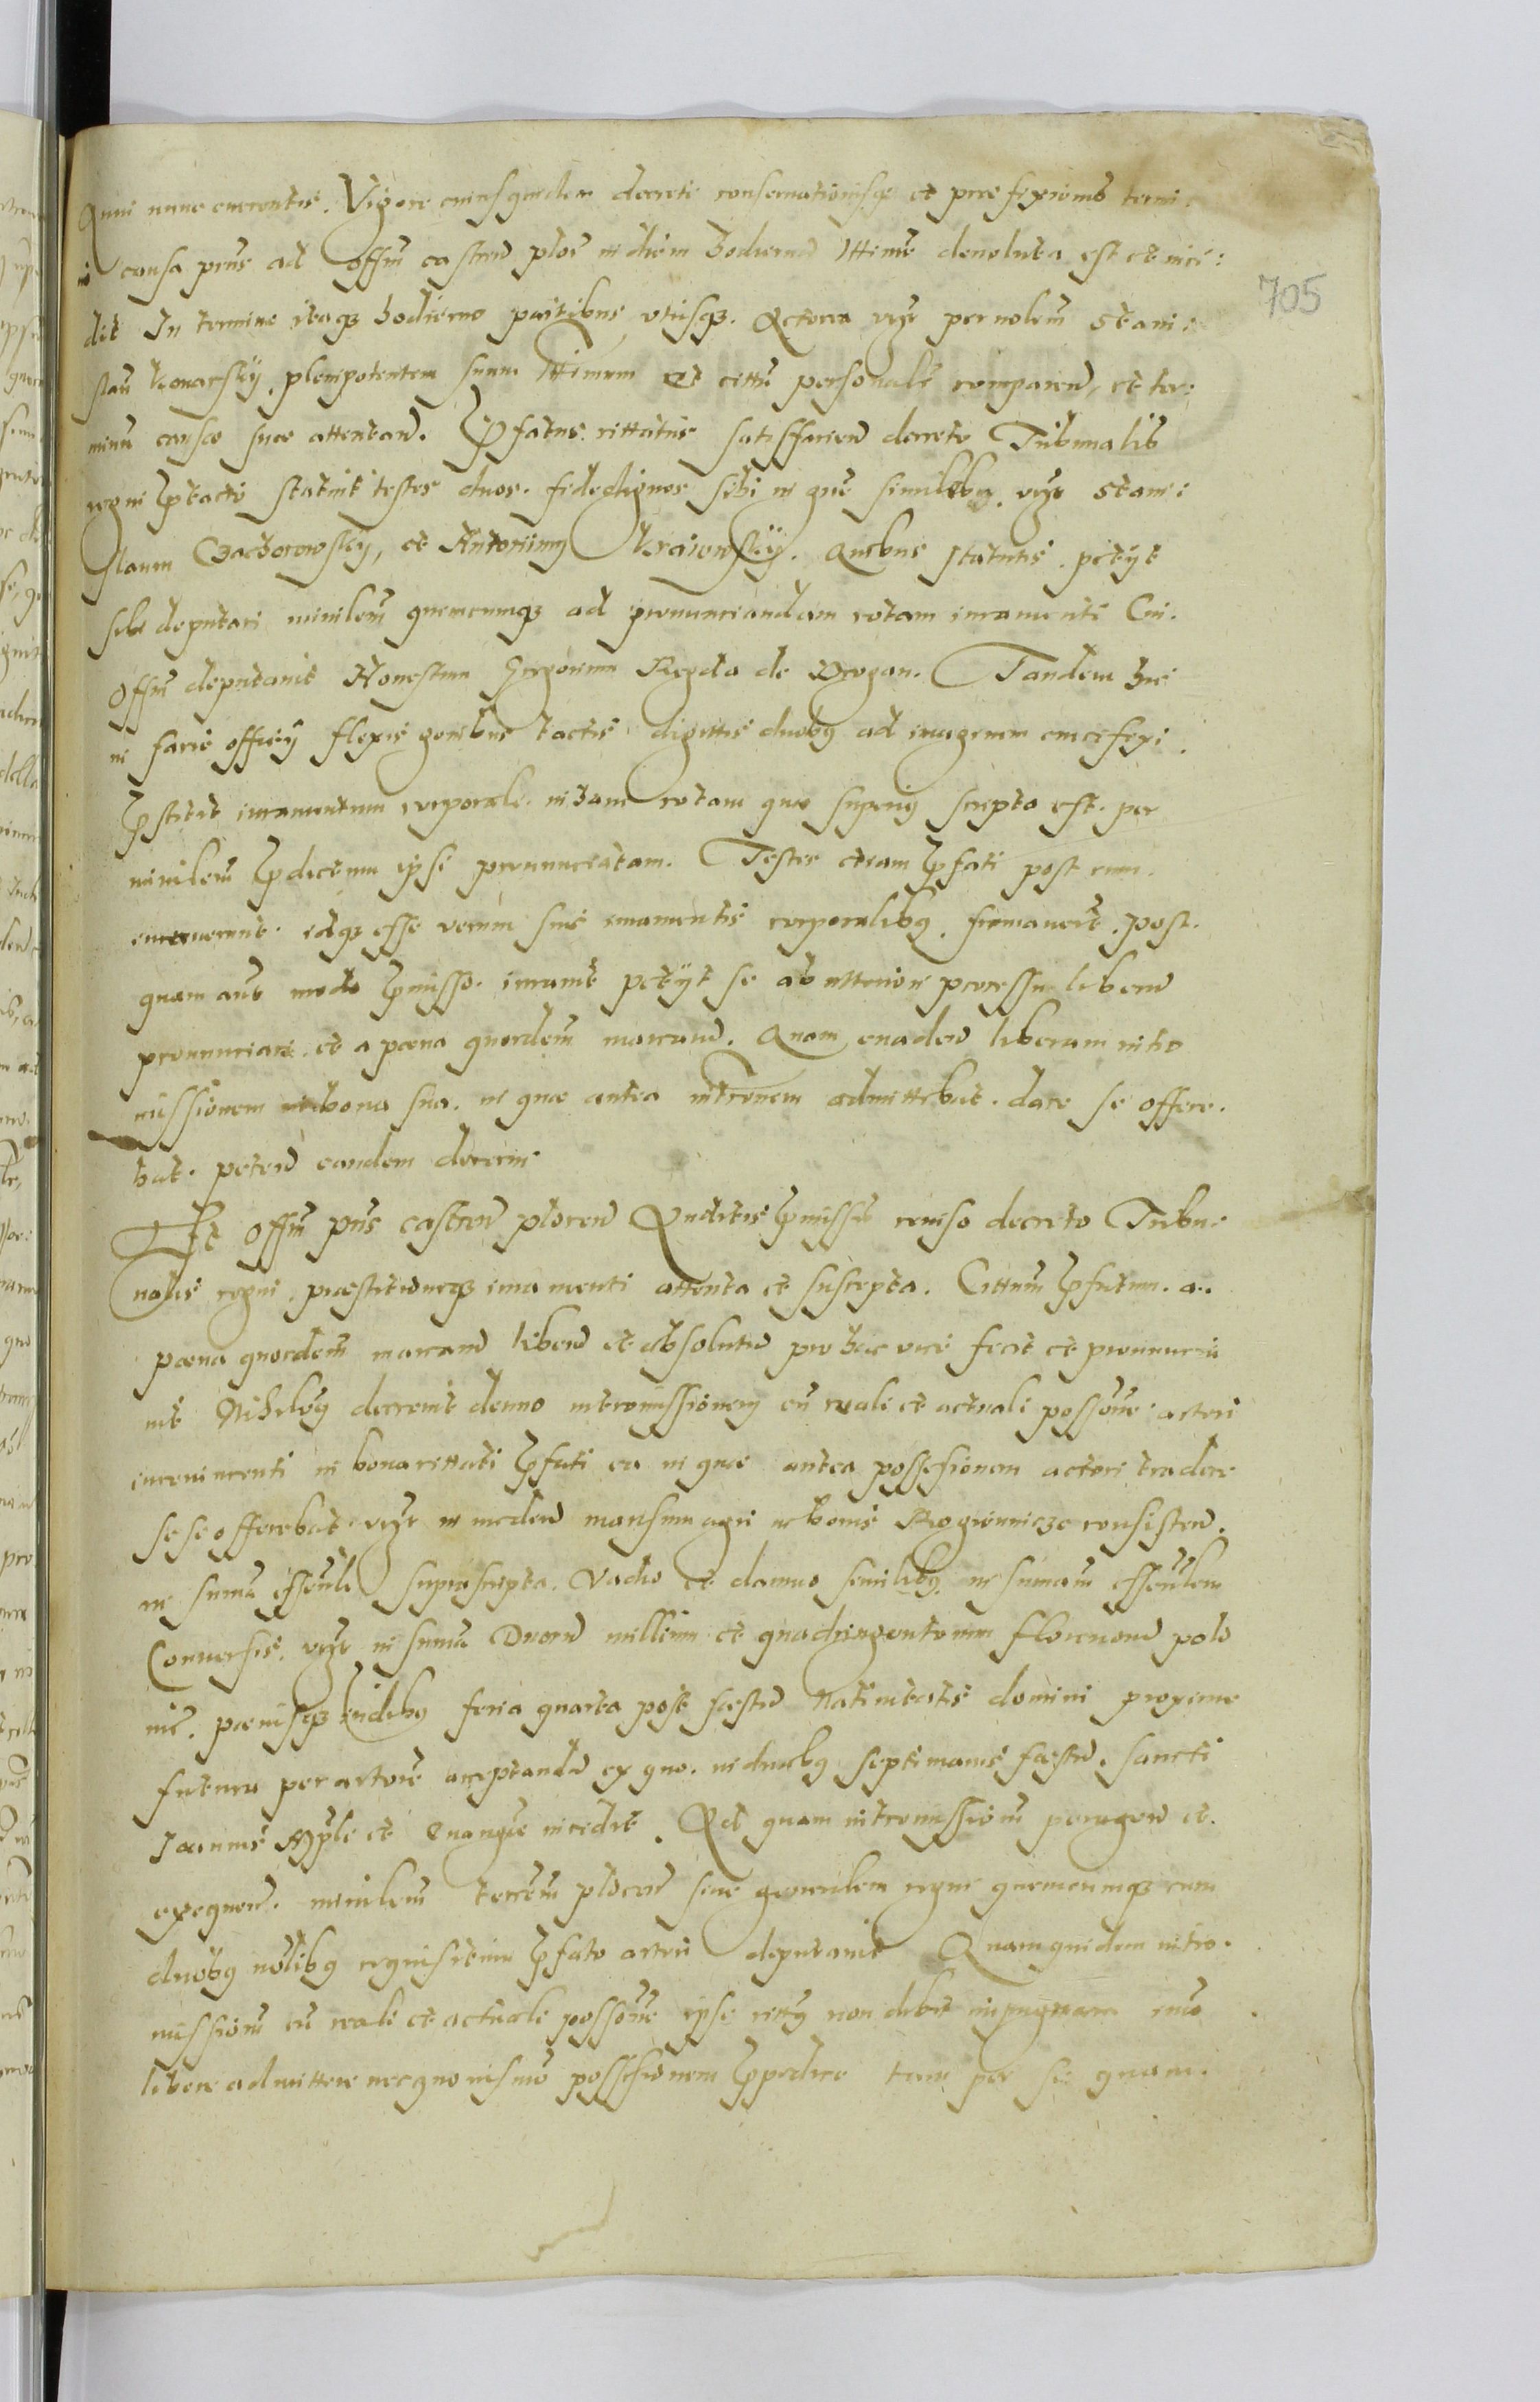 Anni nunc currentis. Vigore cuiusquidem decreti conservationisq et praefixionis termi:
ni causa prns ad offm castren ploc in diem hodiernu lttime devoluta est et inci:
dit In termino itaq hodierno partibus utrisq. Actorea vizt per nobilem Stani:
slau Konarsky plenipotentem suum lttimum Et citto personalr comparen, et ter:
minu causae suae attentan. Pfatus. cittatus satisfacien decreto Tribunalis
regni ptacto statuit testes duos. fidedignos sibi in gne similes. vizt Stani:
slaum Czachorowsky, et Antonium Kraiewsky. Quibus statutis. petyt
sibi deputari minilem quemcunq ad pronunciandam rotam iuramenti Cui.
Offm deputavit Honestum Gregorium Regda de Drogan. Tandem hic
in facie officy flexis genibus tactis digittis duobus ad imaginem crucefixi.
Pstitit iuramentum corporale. in eam rotam quae superius scripta est. per
minilem pdictum ipsi pronunciatam. Testes etiam pfati post eum.
iuraverunt. idq esse verum suis iuramentis corporalibus. firmavert. post.
quam aut modo pmisso. iuravit petyt se ab ulteriori processu liberu
pronunciari. et a paena quordem marcaru. Quam evaden liberam intro
missionem in bona sua. in quae antea introm admittebat. dare se offere.
bat. peten eandem decerni
Et Offm prns castren plocen Auditis pmissis reviso decreto Tribu:
nalis regni. praestitioneq iuramenti attenta et suscepta. Cittum pfatum. a.
paena quordem marcaru liberu et absolutu pro hac vice fecit et pronuncia
vit Nihilus decrevit denuo intromissionem cu reali et actuali possone actori
in bona cittati pfati ea in quae antea possesionem actori tradere
sese offerebat vizt in medien mansum agri in bonis Rogienicze consisten.
in suma essenli suprascripta. Vadio et damno similibus in sumam essenlem
Conversis. vizt in suma Duoru millium et quadringentorum florenoru polo
nic. paenisq iudlibus feria quarta post faestu Nativitatis domini proxime
futura per actore acceptanda ex quo. in duobus septimanis faestu. sancti
Joannis Apple et Evange incedit. Ad quam intromissionem peragen et.
exequen. minilem terrem plocen sive generalem regni quemcunq cum
duobus nobilibus requisitum pfato actori deputavit Quamquidem intro.
missionem cu reale et actuale possone ipse cittus non debet impugnare imo
libere admittere necquovismo possesionem ppedire tam per se quam.
705